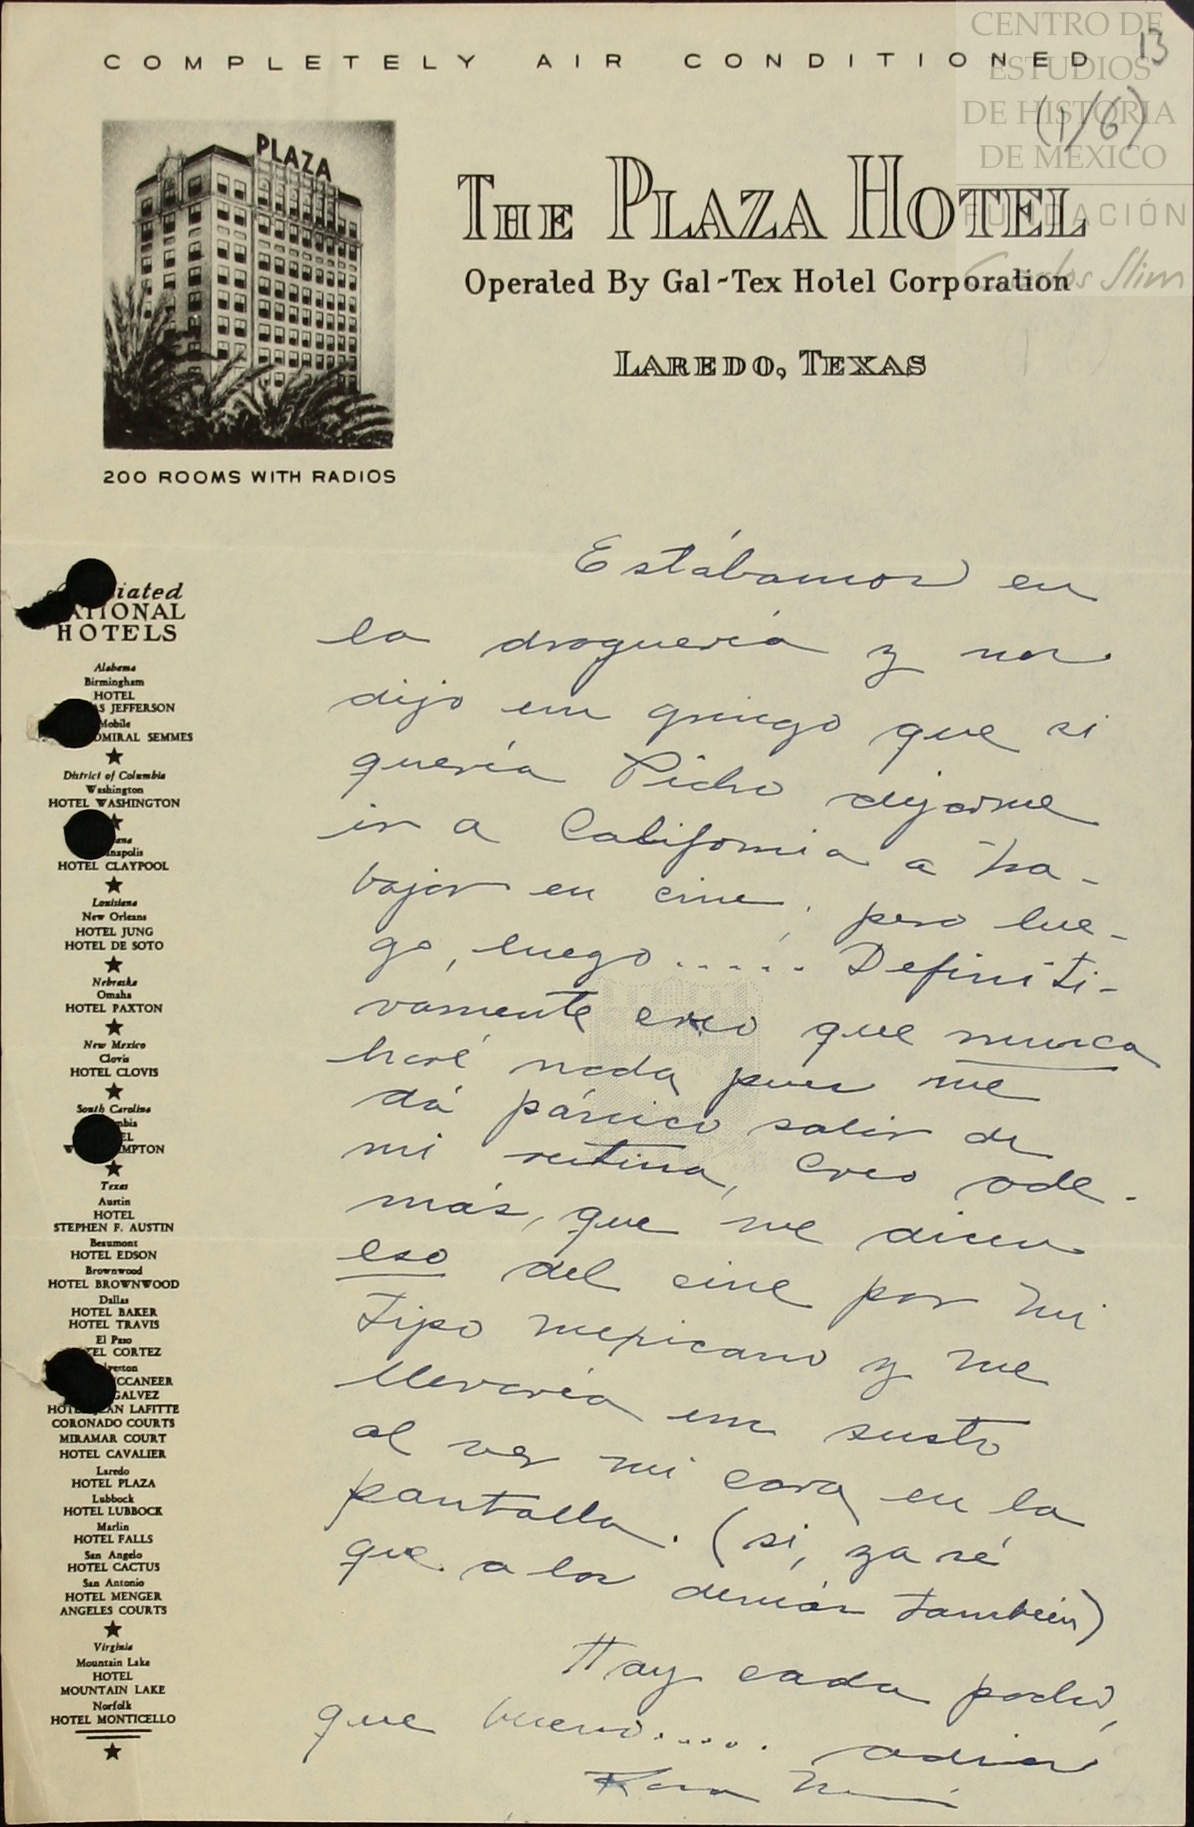 COMPLETELY AIR CONDITIONED
13
(1/6)
CENTRO DE
ESTUDIOS
DE HISTORIA
DE MEXICO
FUNDACIÓN
Carlos Slim
PLAZA
THE PLAZA HOTEL
Operated By Gal-Tex Hotel Corporation
LAREDO, TEXAS
200 ROOMS WITH RADIOS
Estábamos en
la droguería y nos
dijo un griego que si
quería Picho dejarme
ir a California a tra-
bajar en cine, pero lue-
go, luego..... Definiti-
vamente creo que nunca
haré nada pues me
dá pánico salir de
mi rutina, creo ade-
más, que me dicen
eso del cine por mi
tipo mexicano y me
llevaría un susto
al ver mi cara en la
pantalla. (si, ya sé
que a los demás también)
Hay cada
que bueno..... adios
Rosa
HOTELS
Alabama
Birmingham
HOTEL
JEFFERSON
Mobile
ADMIRAL SEMMES
District of Columbia
Washington
HOTEL WASHINGTON
HOTEL CLAYPOOL
Louisiana
New Orleans
HOTEL JUNG
HOTEL DE SOTO
Nebraska
Omaha
HOTEL PAXTON
New Mexico
Clovis
HOTEL CLOVIS
South Carolina
Texas
Austin
HOTEL
STEPHEN F. AUSTIN
Beaumont
HOTEL EDSON
Brownwood
HOTEL BROWNWOOD
Dallas
HOTEL BAKER
HOTEL TRAVIS
El Paso
HOTEL CORTEZ
GALVEZ
HOTEL JEAN LAFITTE
CORONADO COURTS
MIRAMAR COURT
HOTEL CAVALIER
Laredo
HOTEL PLAZA
Lubbock
HOTEL LUBBOCK
Marlin
HOTEL FALLS
San Angelo
HOTEL CACTUS
San Antonio
HOTEL MENGER
ANGELES COURTS
Virginia
Mountain Lake
HOTEL
MOUNTAIN LAKE
Norfolk
HOTEL MONTICELLO